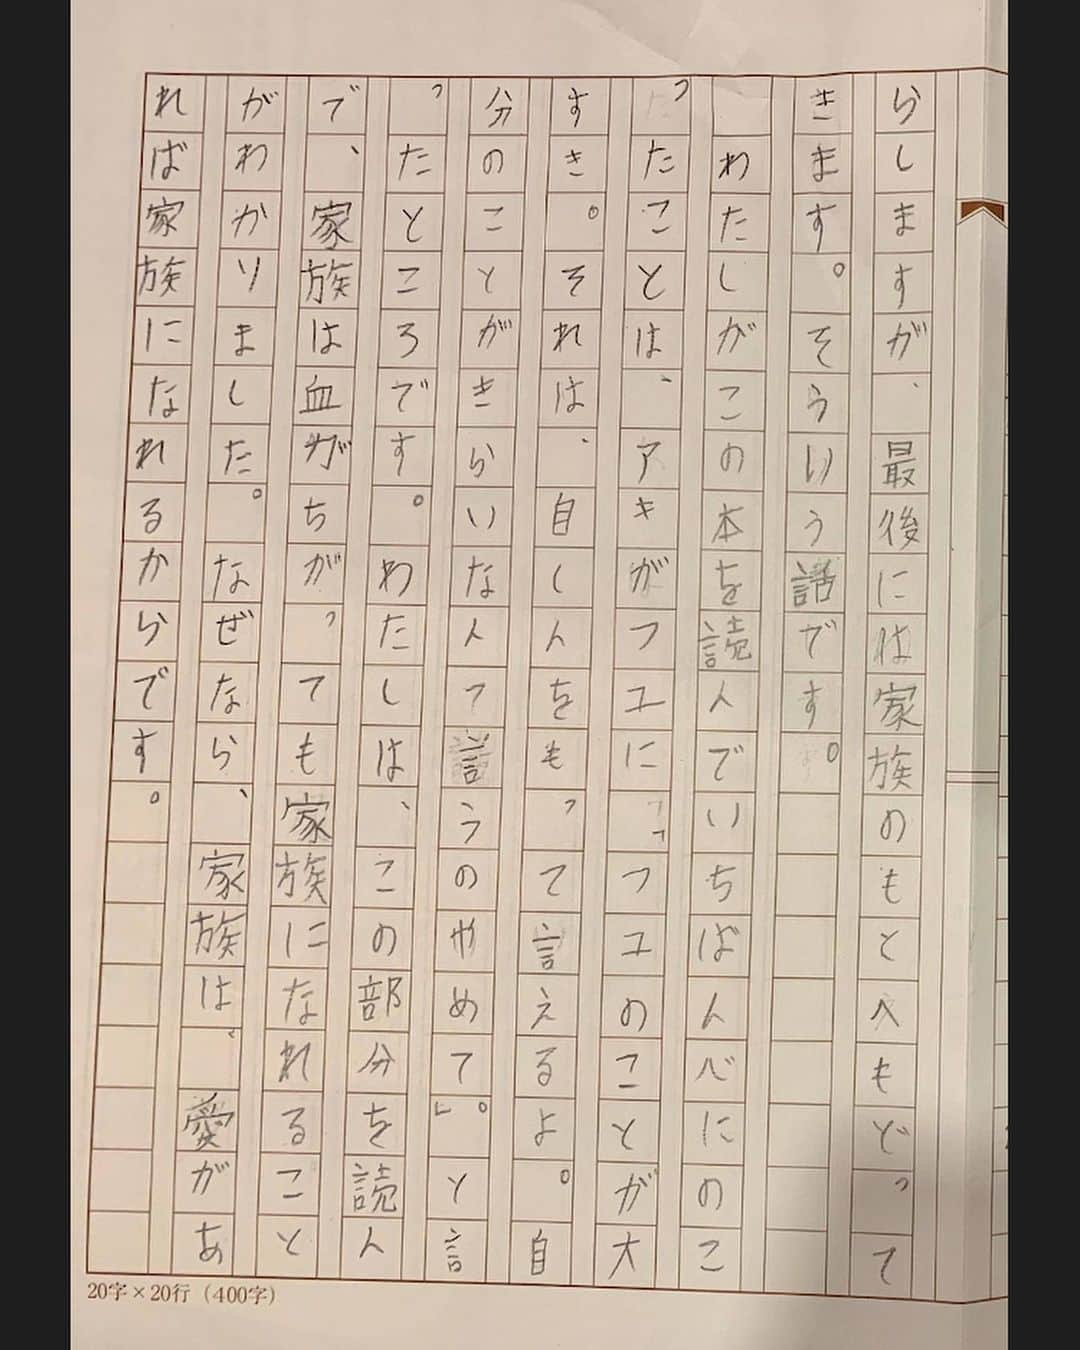 らしますが、最後には家族のもとへもどって
きます。そういう話です。
わたしがこの本を読んでいちばん心にのこ
ったことは、アキがフユに「フユのことが大
すき。それは、自しんをもって言えるよ。自
分のことがきらいなんて言うのやめて。」と言
ったところです。わたしは、この部分を読ん
で、家族は血がちがっても家族になれること
がわかりました。なぜなら、家族は、愛があ
れば家族になれるからです。
20字×20行（400字）